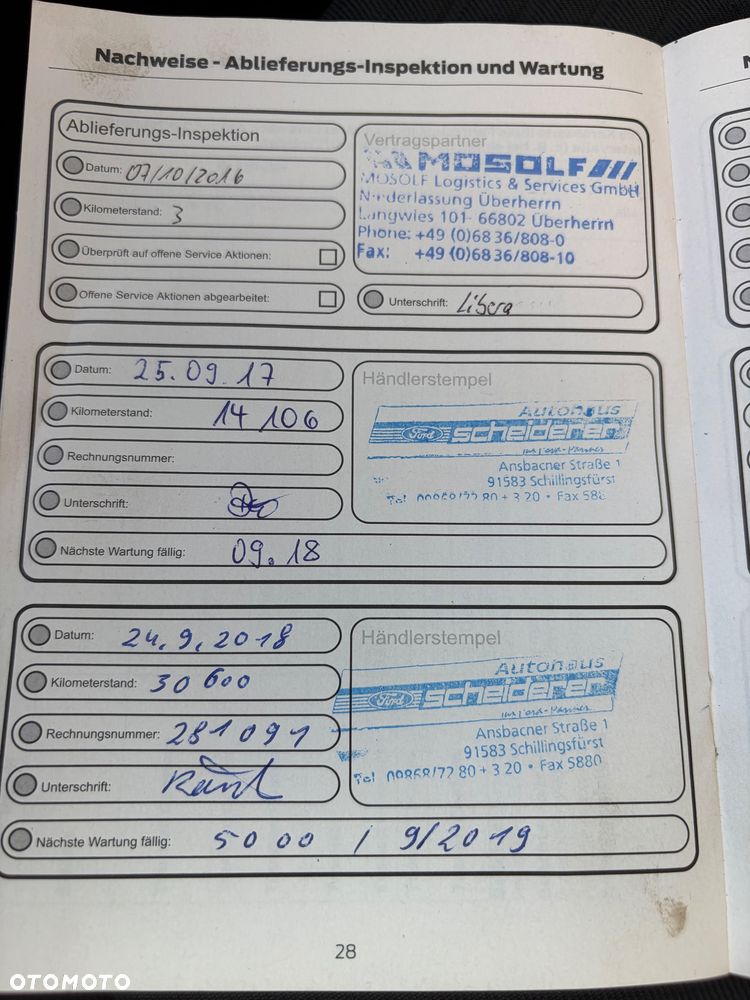 Nachweise - Ablieferungs-Inspektion und Wartung
Ablieferungs-Inspektion
Datum: 07/10/2016
Kilometerstand: 3
Überprüft auf offene Service Aktionen:
Offene Service Aktionen abgearbeitet:
Vertragspartner
MOSOLF
MOSOLF Logistics & Services GmbH
Niederlassung Überherrn
Langwies 101- 66802 Überherrn
Phone: +49 (0)68 36/808-0
Fax: +49 (0)68 36/808-10
Unterschrift:
Datum: 25.09.17
Kilometerstand: 14 106
Rechnungsnummer:
Unterschrift:
Nächste Wartung fällig: 09.18
Händlerstempel
Autohaus
Ford scheiderer
Ansbacher Straße 1
91583 Schillingsfürst
Tel 09868/77 80 + 3 20 • Fax 588
Datum: 24.9.2018
Kilometerstand: 30 600
Rechnungsnummer: 281091
Unterschrift:
Nächste Wartung fällig: 5000 / 9/2019
Händlerstempel
Autohaus
Ford scheiderer
Ansbacher Straße 1
91583 Schillingsfürst
Tel 09868/77 80 + 3 20 • Fax 5880
28
OTOMOTO